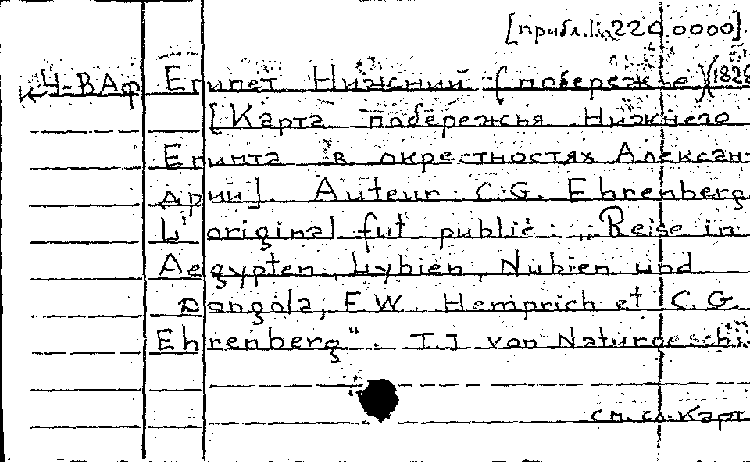 [прибл. 1:2200000]
К4-ВАф Египет Нижний (побережье)(182
[Карта побережья Нижнего
Египта в окрестностях Алексан-
дрии]. Auteur C.G. Ehrenberg
L'original fut publié: „Reise in
Aegypten, Lybien, Nubien und
Dongola, E.W. Hemprich et C.G.
Ehrenberg". T.I von Naturgeschi
см. сл. карт